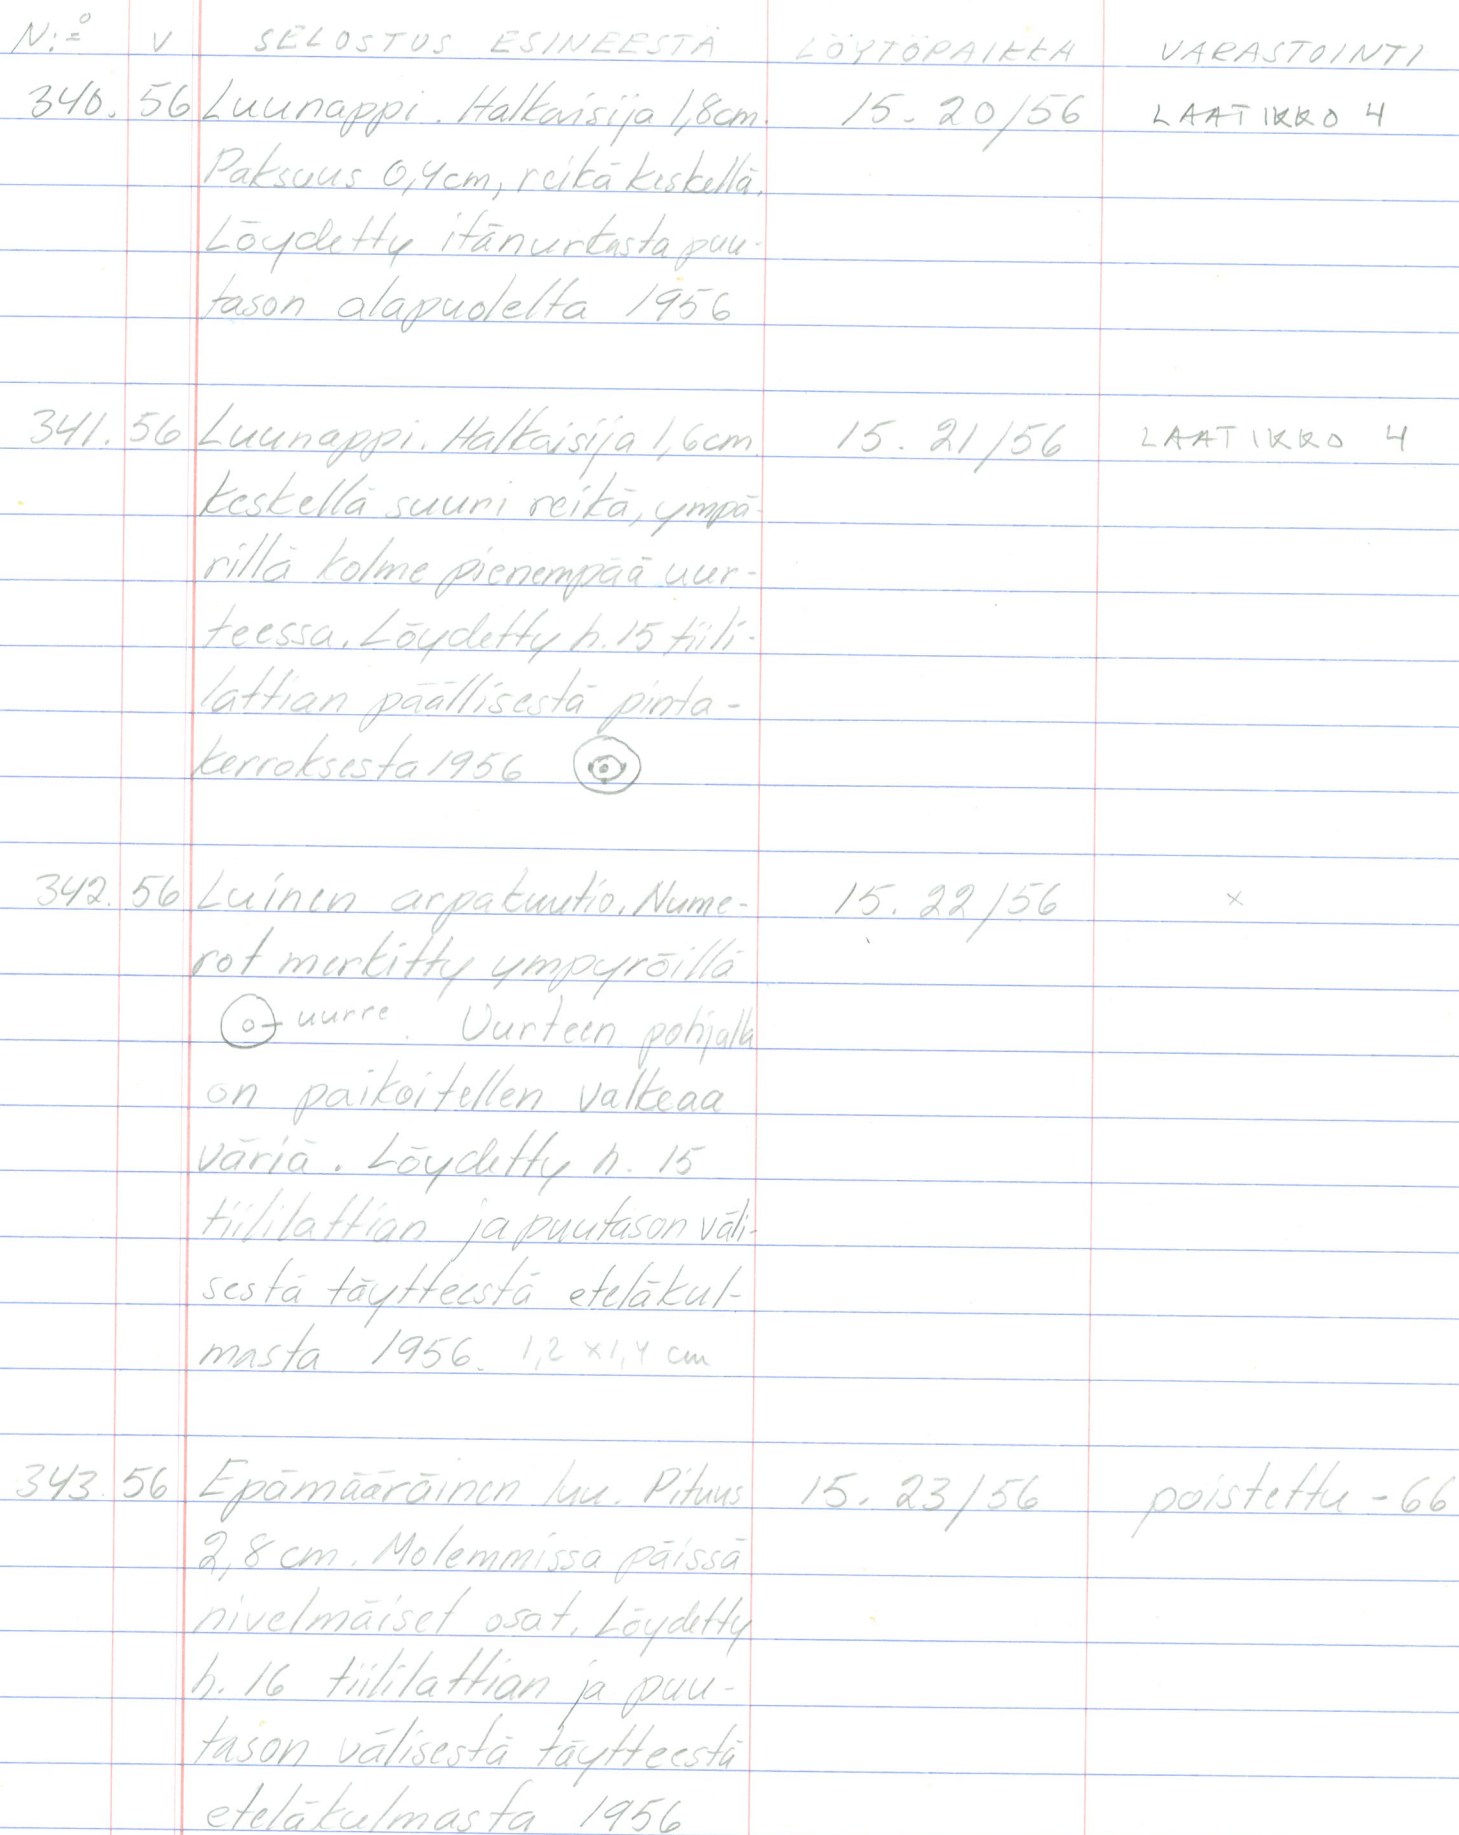 N:o V SELOSTUS ESINEESTÄ LÖYTÖPAIKKA VARASTOINTI
340. 56 Luunappi. Halkaisija 1,8cm. 15. 20/56 LAATIKKO 4
Paksuus 0,4cm, reikä keskellä.
Löydetty itänurkasta puu-
tason alapuolelta 1956
341. 56 Luunappi. Halkaisija 1,6cm. 15. 21/56 LAATIKKO 4
keskellä suuri reikä, ympä-
rillä kolme pienempää uur-
teessa. Löydetty h. 15 tiili-
lattian päällisestä pinta-
kerroksesta 1956
342. 56 Luinen arpakuutio. Nume- 15. 22/56 x
rot merkitty ympyröillä
uurre. Uurteen pohjalla
on paikoitellen valkeaa
väriä. Löydetty h. 15
tiililattian ja puutason väli-
sestä täytteestä eteläkul-
masta 1956. 1,2 x 1,4 cm
343. 56 Epämääräinen luu. Pituus 15. 23/56 poistettu - 66
2,8 cm. Molemmissa päissä
nivelmäiset osat. Löydetty
h. 16 tiililattian ja puu-
tason välisestä täytteestä
eteläkulmasta 1956